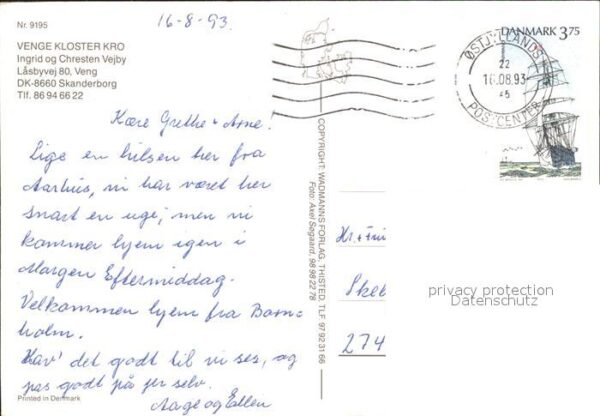 Nr. 9195
16-8-93.
VENGE KLOSTER KRO
Ingrid og Chresten Vejby
Låsbyvej 80, Veng
DK-8660 Skanderborg
Tlf. 86 94 66 22
Kære Grethe + Arne.
Lige en hilsen her fra
Aarhus, vi har været her
snart en uge, men vi
kommer hjem igen i
Morgen Eftermiddag.
Velkommen hjem fra Born-
holm.
Hav' det godt til vi ses, og
pas godt på jer selv.
Aage og Ellen
Printed in Denmark
COPYRIGHT: WADMANNS FORLAG, THISTED, TLF. 97 92 31 66
Foto: Axel Søgaard, 98 98 22 78
DANMARK 3,75
ØSTJYLLANDS
22
16.08.93
POSTCENTER
Hr. + Fru
Skeb
274
privacy protection
Datenschutz